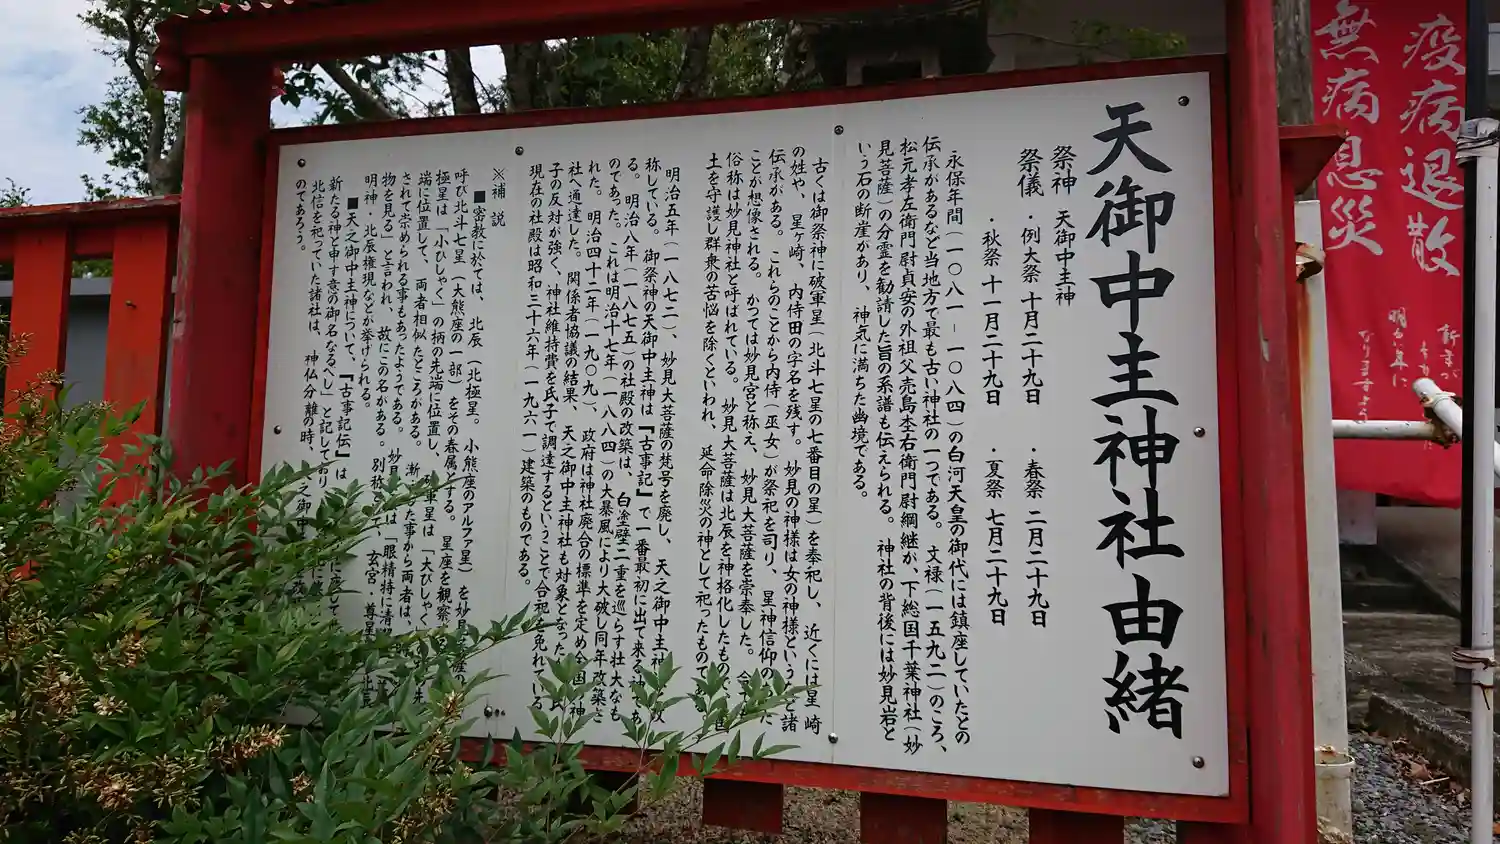 天御中主神社由緒
祭神　天御中主神
祭儀　・例大祭 十月二十九日　・春祭 二月二十九日
・秋祭 十一月二十九日　・夏祭 七月二十九日
永保年間（一〇八一－一〇八四）の白河天皇の御代には鎮座していたとの
伝承があるなど当地方で最も古い神社の一つである。文禄（一五九二）のころ、
松元孝左衛門尉貞安の外祖父売島杢右衛門尉綱継が、下総国千葉神社（妙
見菩薩）の分霊を勧請した旨の系譜も伝えられる。神社の背後には妙見岩と
いう石の断崖があり、神気に満ちた幽境である。
古くは御祭神に破軍星（北斗七星の七番目の星）を奉祀し、近くには星崎
の姓や、星ヶ崎、内侍田の字名を残す。妙見の神様は女の神様という
伝承がある。これらのことから内侍（巫女）が祭祀を司り、星神信仰の
ことが想像される。かつては妙見宮と称え、妙見大菩薩を崇奉した。
俗称は妙見神社と呼ばれている。妙見大菩薩は北辰を神格化したもので
土を守護し群衆の苦悩を除くといわれ、延命除災の神として祀ったもので
明治五年（一八七二）、妙見大菩薩の梵号を廃し、天之御中主神
称している。御祭神の天御中主神は『古事記』で一番最初に出て来る神であ
る。明治八年（一八七五）の社殿の改築は、白塗壁二重を巡らす壮大なも
のであった。これは明治十七年（一八八四）の大暴風により大破し同年改築さ
れた。明治四十二年（一九〇九）、政府は神社廃合の標準を定め全国
社へ通達した。関係者協議の結果、天之御中主神社も対象となった
子の反対が強く、神社維持費を氏子で調達するということで合祀を免れている
現在の社殿は昭和三十六年（一九六一）建築のものである。
※補説
■密教に於ては、北辰（北極星。小熊座のアルファ星）を妙見
呼び北斗七星（大熊座の一部）をその眷属とする。星座を観察
極星は「小ひしゃく」の柄の先端に位置し、破軍星は「大ひしゃく
端に位置して、両者相似たところがある。漸
されて崇められる事もあったようである。妙見
物を見る」と言われ、故にこの名がある。別称
明神・北辰権現などが挙げられる。
■天之御中主神について、『古事記伝』は
新たる神と申す意の御名なるべし」と記しており
北信を祀っていた諸社は、神仏分離の時、
のであろう。
疫病退散
無病息災